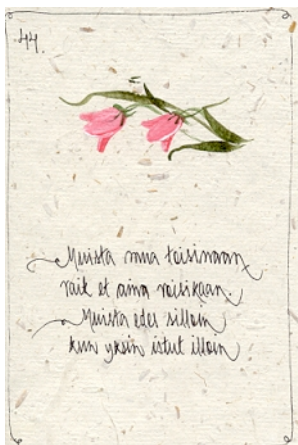 44.
Muista mua toisinaan
vait et aina voisikaan.
Muista edes silloin
kun yksin istut illoin